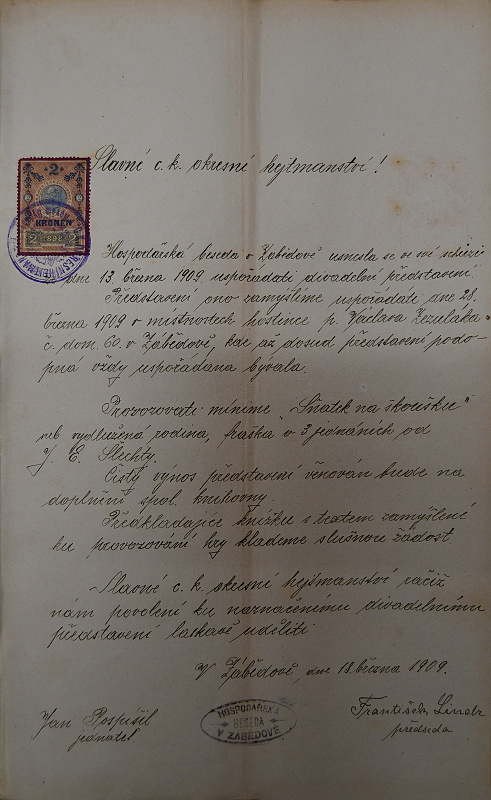 Slavné c. k. okresní hejtmanství!
2
KRONEN
2 1898 2
Hospodářská beseda v Zábědově usnesla se ve své schůzi
dne 13. března 1909 uspořádati divadelní představení.
Představení ono zamýšlíme uspořádati dne 28.
března 1909 v místnostech hostince p. Václava Zezuláka
č. dom. 60. v Zábědově, kde až dosud představení podo-
pná vždy uspořádána bývala.
Provozovati míníme „Sňatek na zkoušku"
neb vydlužená rodina, fraška o 3 jednáních od
J. E. Šlechty.
Čistý výnos představení věnován bude na
doplnění spol. knihovny.
Předkládajíce knížku s textem zamýšlené
ku provozování hry klademe slušnou žádost.
Slavné c. k. okresní hejtmanství račiž
nám povolení ku naznačenému divadelnímu
představení laskavě uděliti
V Zábědově, dne 18. března 1909.
Jan Pospíšil
jednatel
HOSPODÁŘSKÁ
BESEDA
V ZÁBĚDOVĚ
František
předseda